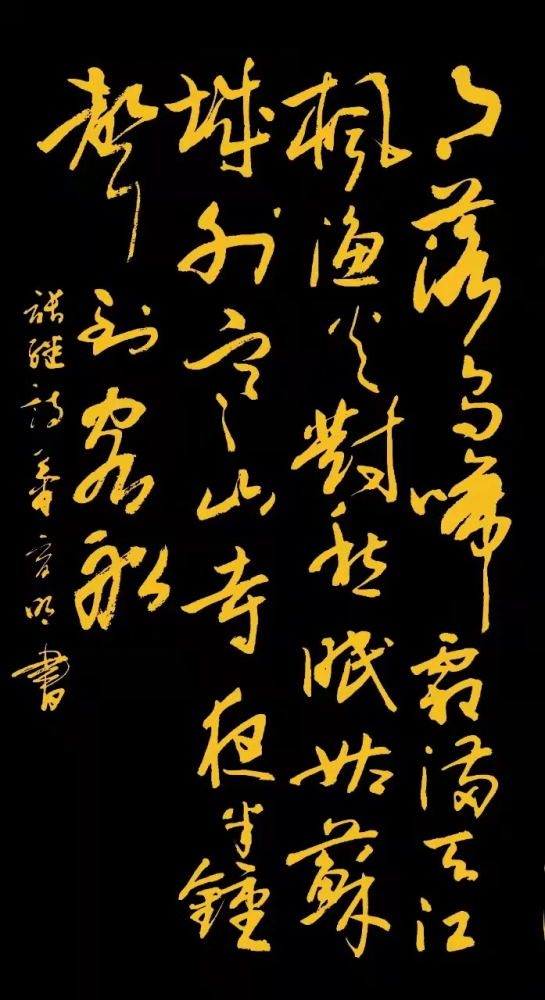 月落烏啼霜滿天江
楓漁火對愁眠姑蘇
城外寒山寺夜半鍾
聲到客船
張繼詩 明書